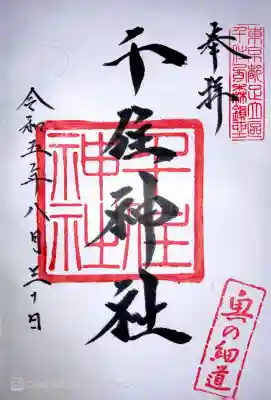 東京都足立區
千住西森鎮座
奉拝
千住神社
千住
神社
令和五年八月三十日
奥の細道